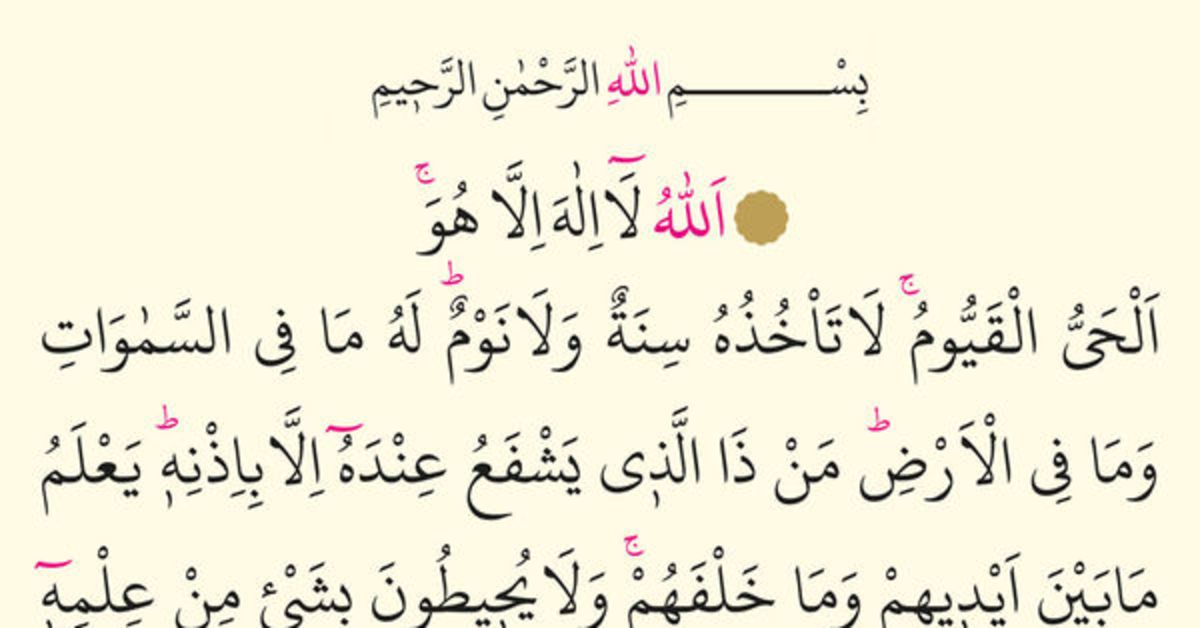 بِسْـــــــــــمِ اللّٰهِ الرَّحْمٰنِ الرَّحٖيمِ
اَللّٰهُ لَٓا اِلٰهَ اِلَّا هُوَۚ
اَلْحَىُّ الْقَيُّومُۚ لَا تَاْخُذُهُ سِنَةٌ وَلَا نَوْمٌؕ لَهُ مَا فِى السَّمٰوَاتِ
وَمَا فِى الْاَرْضِؕ مَنْ ذَا الَّذٖى يَشْفَعُ عِنْدَهُٓ اِلَّا بِاِذْنِهٖؕ يَعْلَمُ
مَابَيْنَ اَيْدٖيهِمْ وَمَا خَلْفَهُمْۚ وَلَا يُحٖيطُونَ بِشَىْءٍ مِنْ عِلْمِهٖٓ